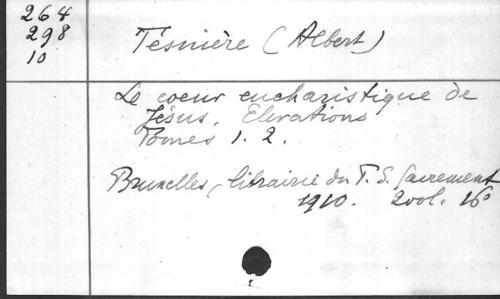 264
298
10
Tesnière (Albert)
Le coeur eucharistique de
Jésus. Elevations
Tomes 1. 2.
Bruxelles, librairie du T. S. Sacrement
1910. 2 vol. 16°